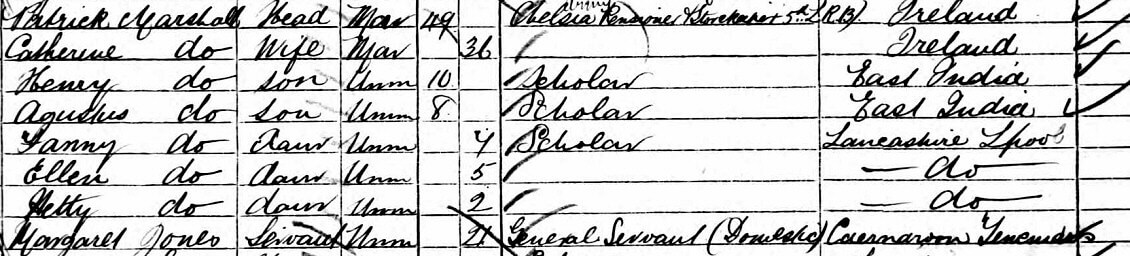 Patrick Marshall Head Mar 49 Chelsea Pensioner & Storekeeper 5th L (R.B) Ireland
Catherine do Wife Mar 36 Ireland
Henry do Son Unm 10 Scholar East India
Agustus do Son Unm 8 Scholar East India
Fanny do daur Unm 7 Scholar Lancashire Lpool
Ellen do daur Unm 5 — do —
Hetty do daur Unm 2 — do —
Margaret Jones Servant Unm 21 General Servant (Domestic) Caernarvon